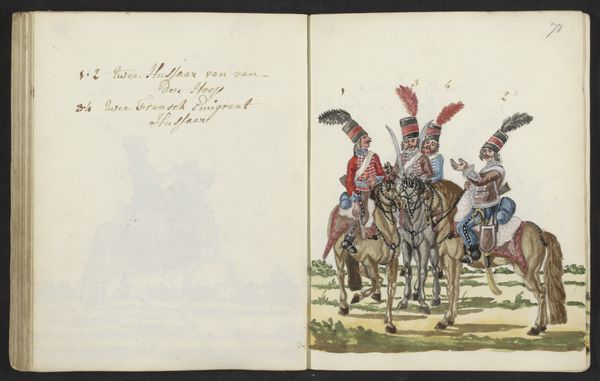 1-2 twee Hussaar van van-
Der Hoop
3-4 twee Fransch Emigrant
Hussaar
71
1 3 4 2